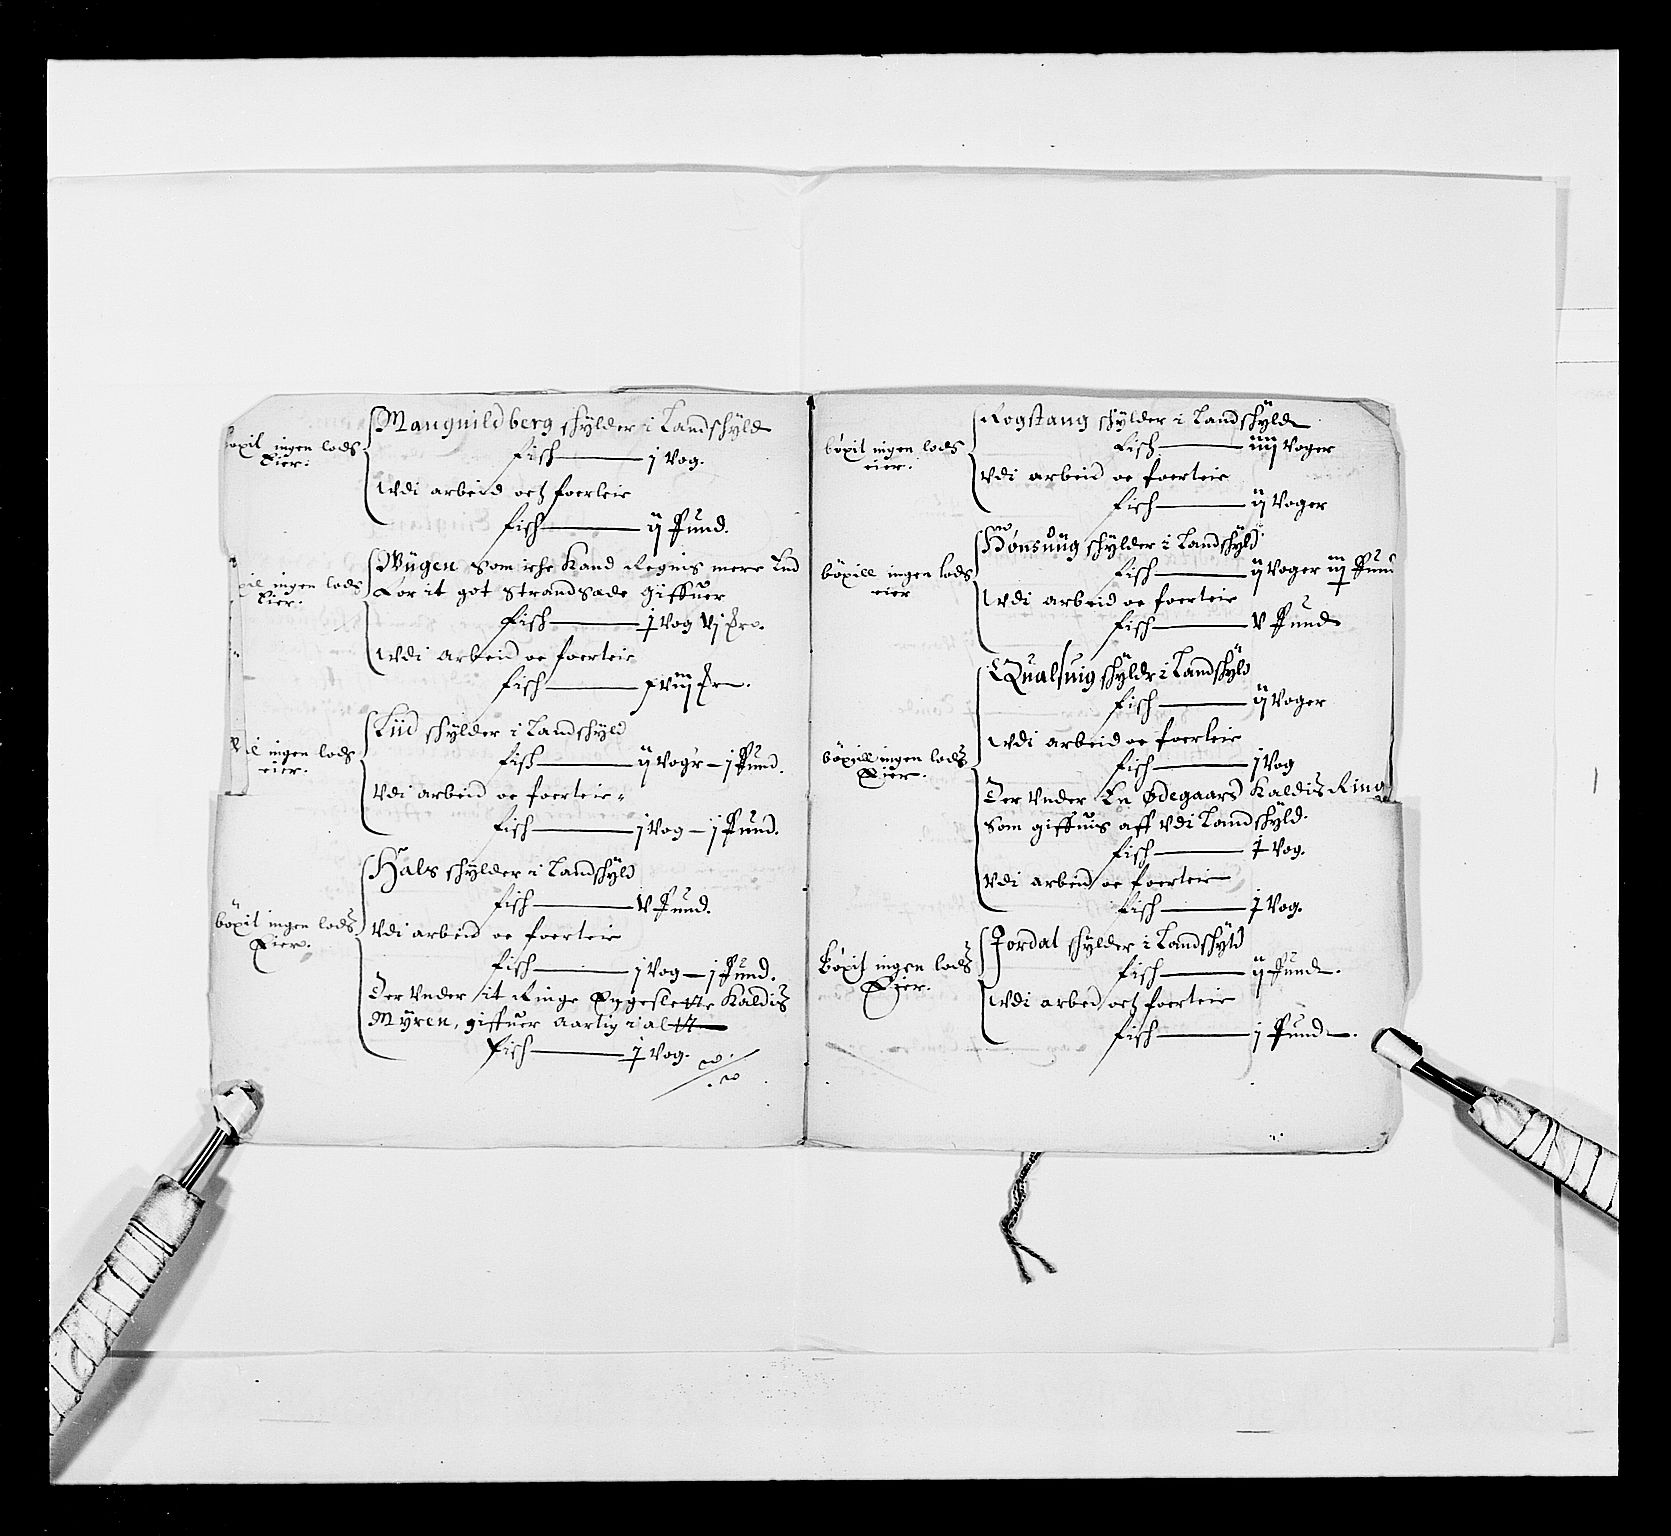 böxil ingen lods
Eier.
Manguildberg schylder i Landschyld
Fisch — j Vog.
Vdi arbeid och foerleie
Fisch — ij Pund.
ingen lods
Eier.
Wügen som iche Kand Regnis mere End
For it got Strandsæde Giffuer
Fisch — j Vog vj
Vdi arbeid oc foerleie
Fisch —
ingen lods
eier.
Liid schylder i Landschyld
Fisch — ij Vogr — j Pund.
Vdi arbeid oc foerleie
Fisch — j Vog — j Pund.
böxil ingen lods
Eier.
Hals schylder i Landschyld
Fisch — v Pund.
Vdi arbeid oc foerleie
Fisch — j Vog — j Pund.
Der Vnder it Ringe Eggeslette Kaldis
Myren, giffuer aarlig i alt
Fisch — j Vog.
böxil ingen lods
eier.
Rogstang schylder i Landschyld
Fisch — iiij Voger
Vdi arbeid oc foerleie
Fisch — ij Voger
böxill ingen lods
eier
Hönsuüg schylder i Landschyld
Fisch — ij Voger iij Pund
Vdi arbeid oc foerleie
Fisch — v Pund
böxill ingen lods
Eier.
Qualsuig schyldr i Landschyld
Fisch — ij Voger
Vdi arbeid oc foerleie
Fisch — j Vog
Der Vnder En Ødegaard Kaldis Ring
Som giffuis aff vdi Landschyld.
Fisch — j Vog.
Vdi arbeid oc foerleie
Fisch — j Vog.
Böxil ingen lods
Eier.
Jordal schylder i Landschyld
Fisch — ij Pund.
Vdi arbeid och foerleie
Fisch — j Pund.